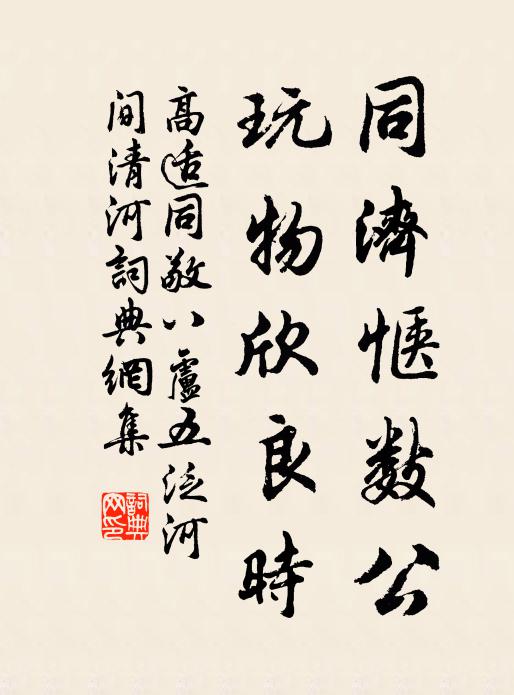 同濟惬數公
玩物欣良時
高适同敬八盧五泛河
间清河詞典網集
詞典网印